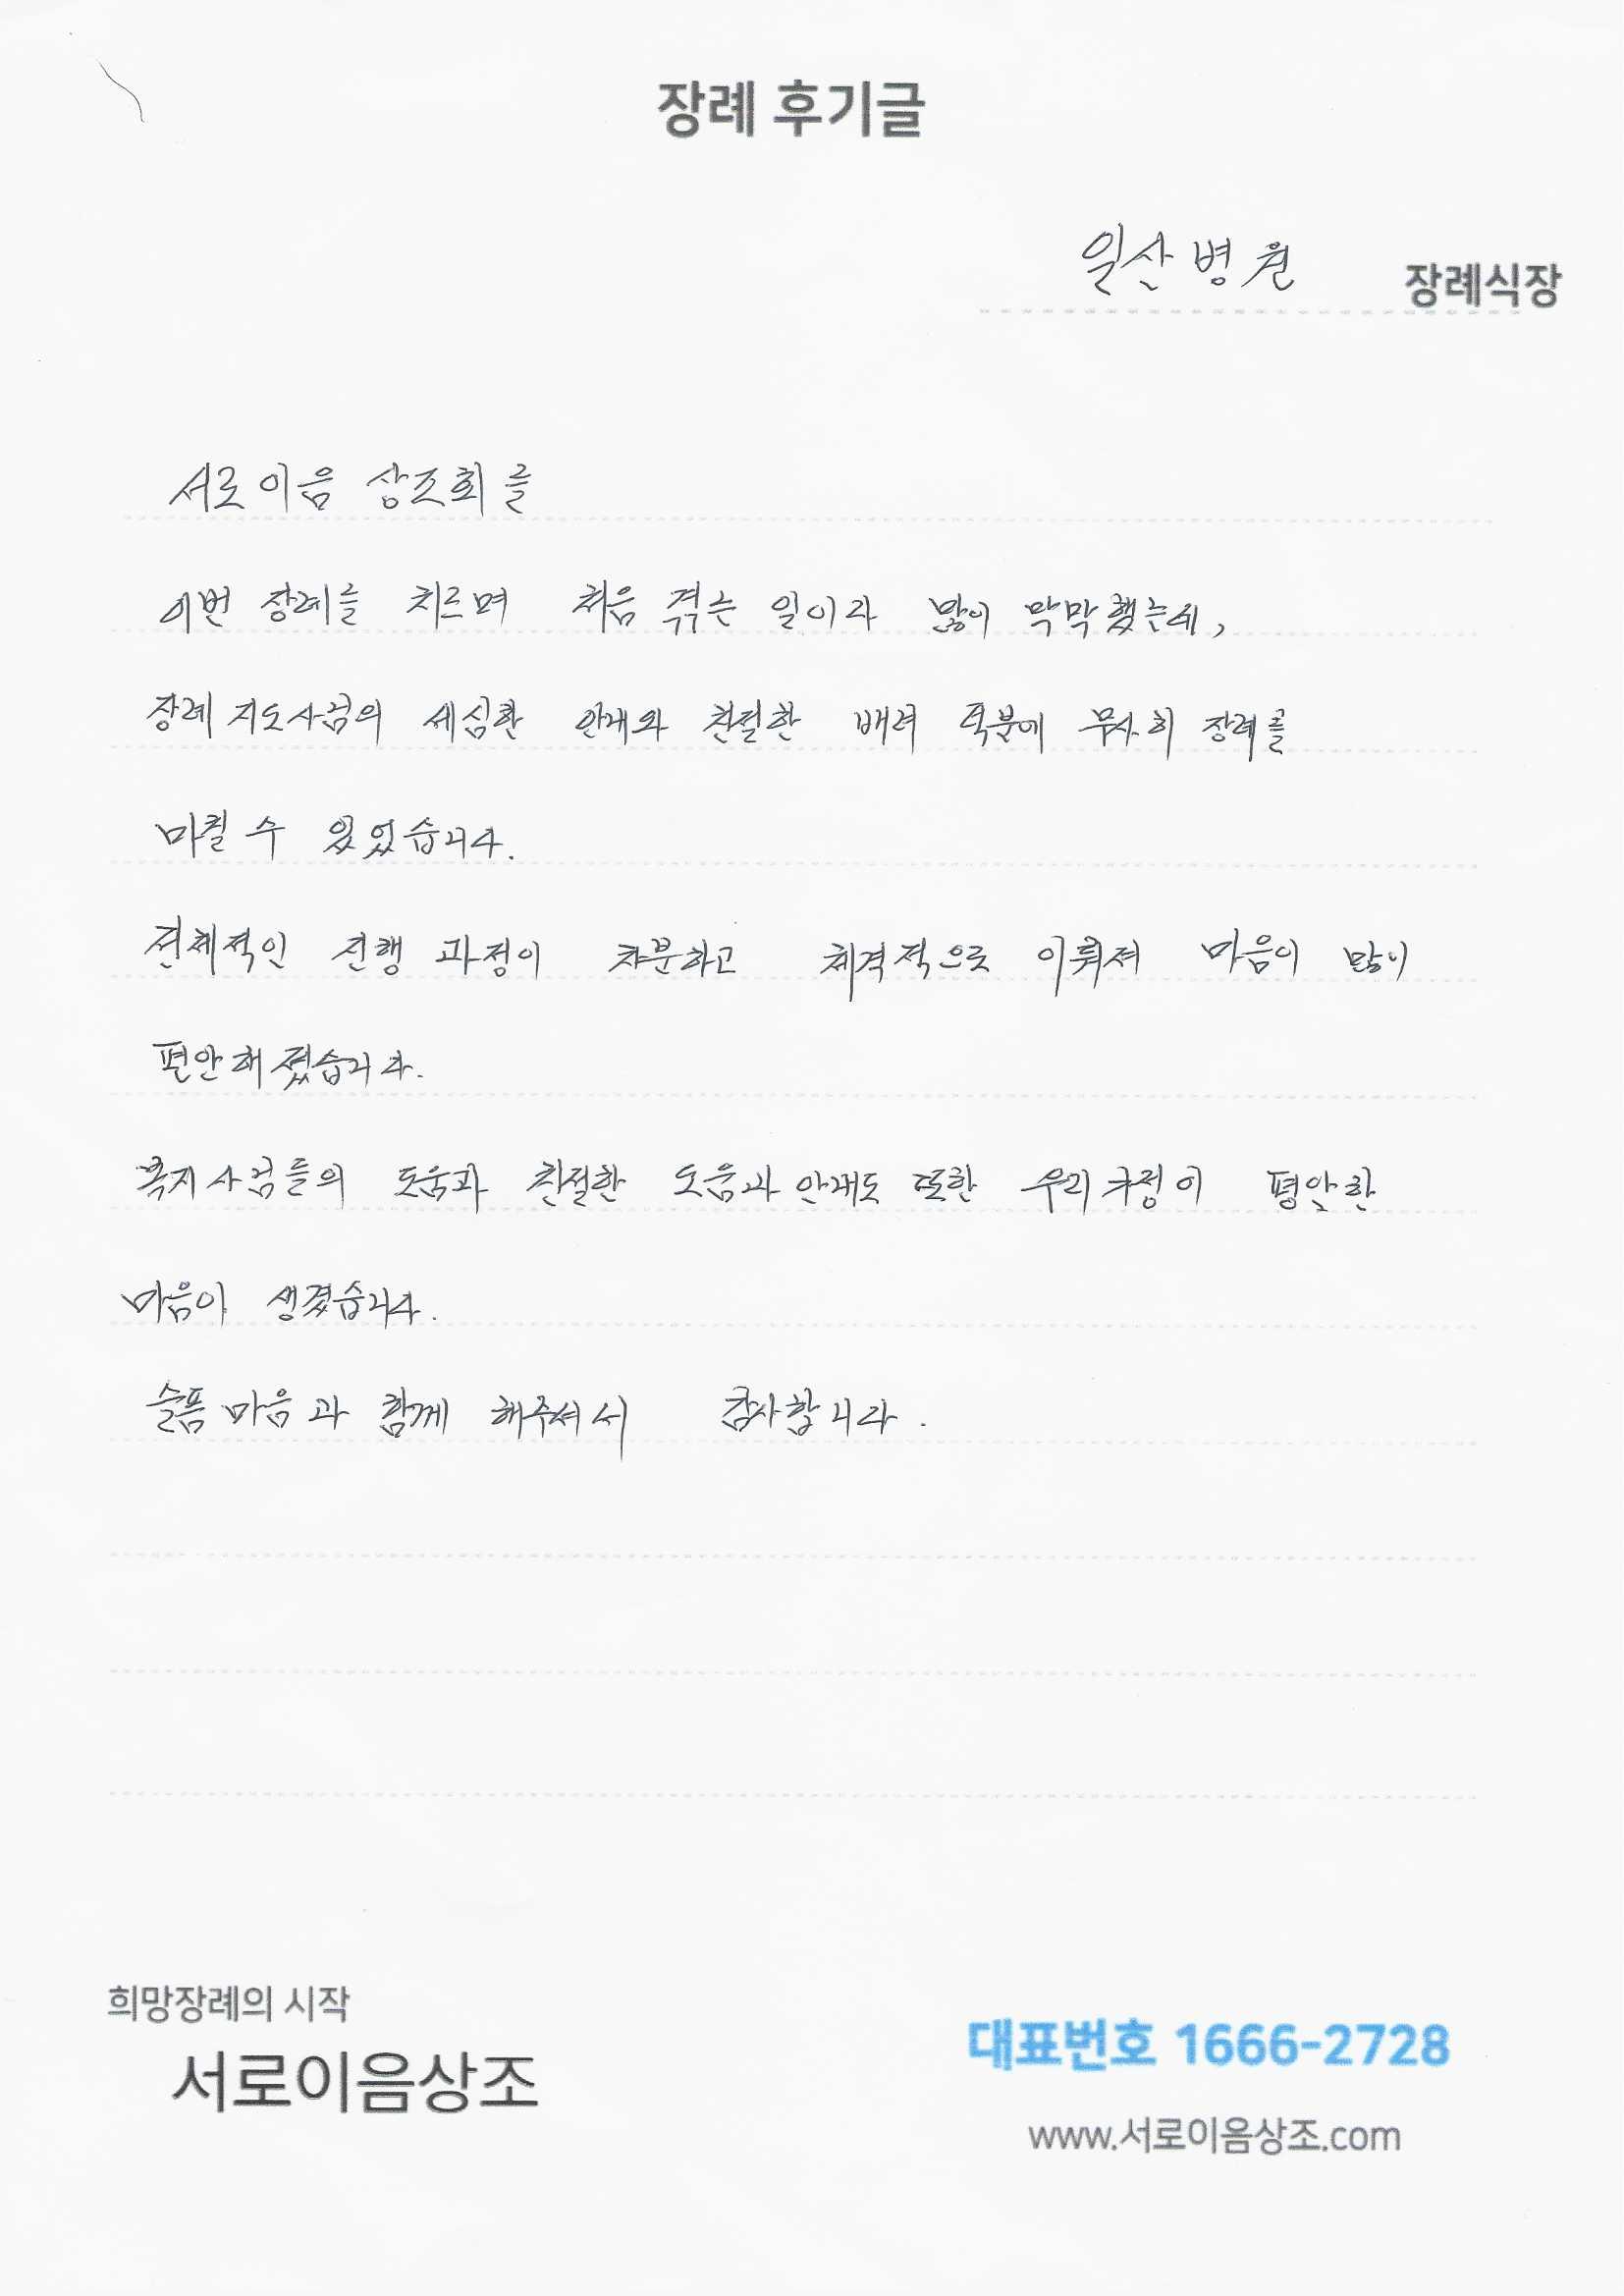 장례 후기글
일산병원 장례식장
서로이음 상조회를
이번 장례를 치르며 처음 겪는 일이라 많이 막막했는데,
장례지도사님의 세심한 안내와 친절한 배려 덕분에 무사히 장례를
마칠 수 있었습니다.
전체적인 진행 과정이 차분하고 체격적으로 이뤄져 마음이 많이
편안해졌습니다.
복지사님들의 도움과 친절한 도움과 안내도 또한 우리 편안한
마음이 생겼습니다.
슬픔 마음과 함께 해주셔서 감사합니다.
희망장례의 시작
서로이음상조
대표번호 1666-2728
www.서로이음상조.com